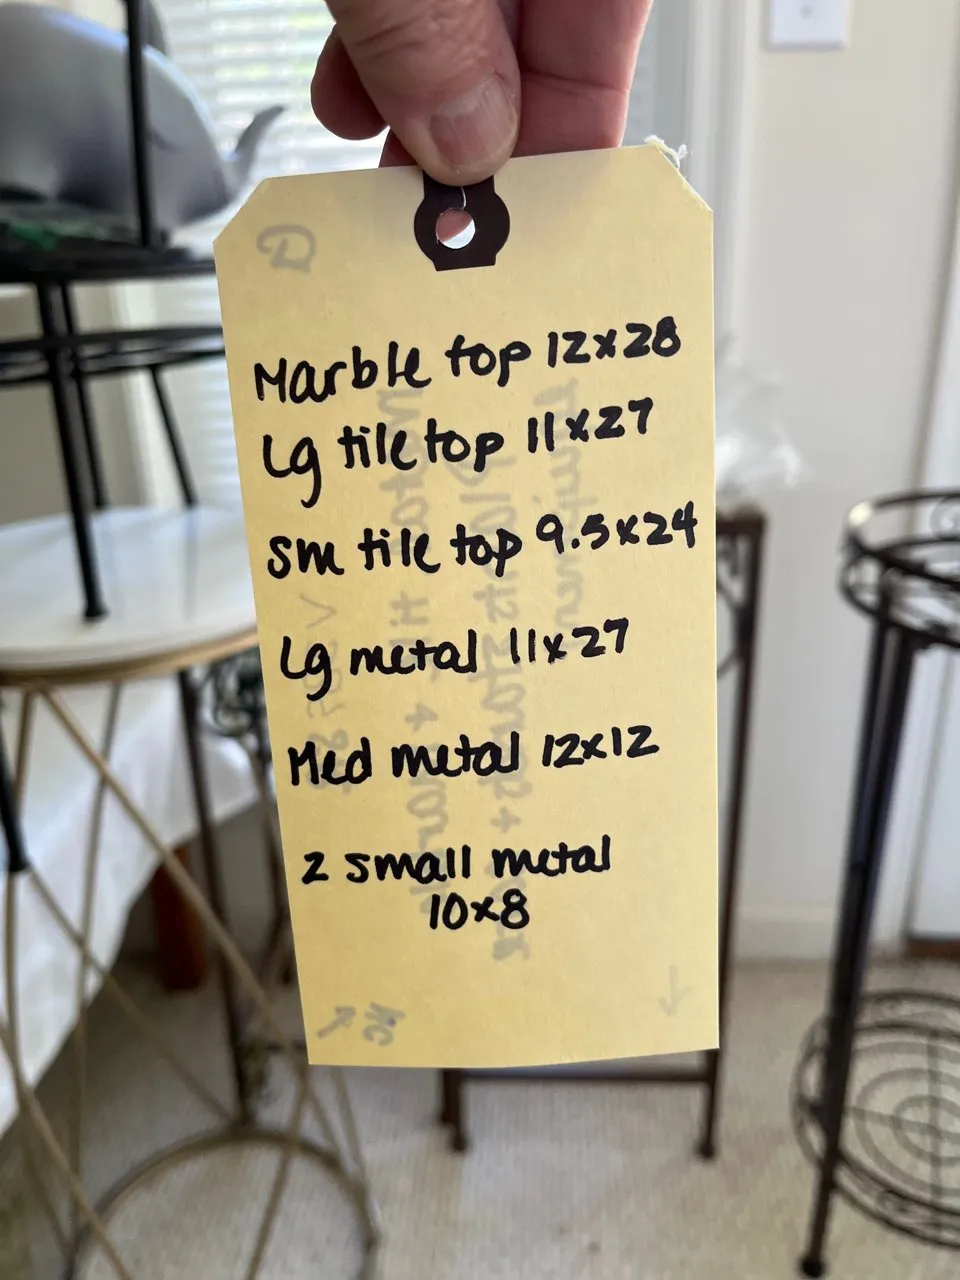 Marble top 12x28
Lg tile top 11x27
Sm tile top 9.5x24
Lg metal 11x27
Med metal 12x12
2 small metal
10x8